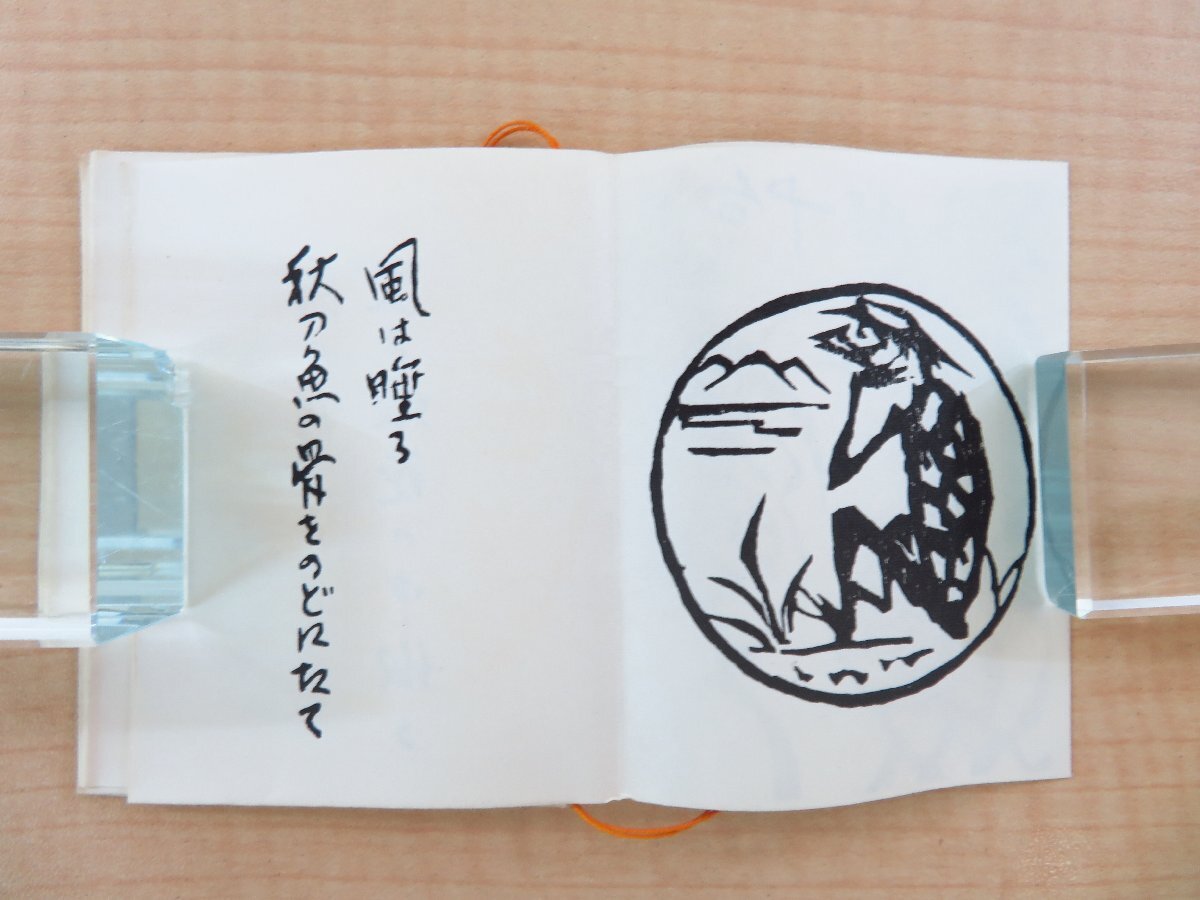 風は睡る
秋刀魚の骨をのどにたて